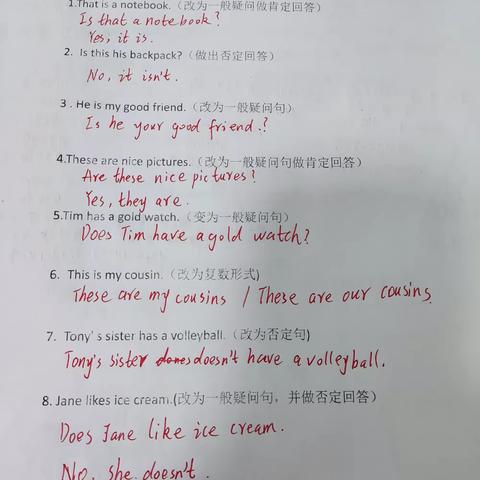 1.That is a notebook.（改为一般疑问做肯定回答）
Is that a notebook?
Yes, it is.
2. Is this his backpack?（做出否定回答）
No, it isn't.
3 . He is my good friend.（改为一般疑问句）
Is he your good friend.?
4.These are nice pictures.（改为一般疑问句做肯定回答）
Are these nice pictures?
Yes, they are.
5.Tim has a gold watch.（变为一般疑问句）
Does Tim have a gold watch?
6. This is my cousin.（改为复数形式)
These are my cousins / These are our cousins.
7. Tony' s sister has a volleyball.（改为否定句)
Tony's sister doesn't have a volleyball.
8. Jane likes ice cream.(改为一般疑问句，并做否定回答）
Does Jane like ice cream.
No, she doesn't.